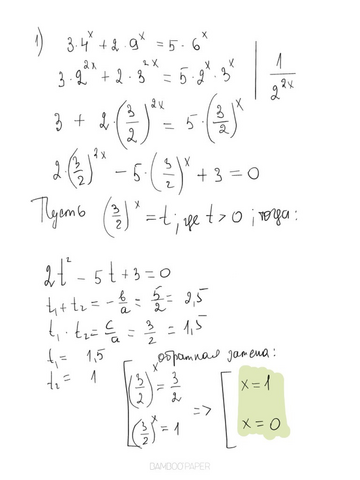 1) 3·4^x + 2·9^x = 5·6^x
3·2^{2x} + 2·3^{2x} = 5·2^x·3^x | 1/2^{2x}
3 + 2·(3/2)^{2x} = 5·(3/2)^x
2·(3/2)^{2x} - 5·(3/2)^x + 3 = 0
Пусть (3/2)^x = t, где t > 0, тогда:
2t² - 5t + 3 = 0
t₁ + t₂ = -b/a = 5/2 = 2,5
t₁ · t₂ = c/a = 3/2 = 1,5
t₁ = 1,5
t₂ = 1
обратная замена:
[ (3/2)^x = 3/2 => [ x = 1
(3/2)^x = 1 x = 0
BAMBOO PAPER